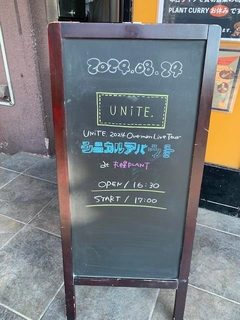 2024.08.24
UNiTE.
UNiTE. 2024 Oneman Live Tour
シニカルアパッチ
at 天根PLANT
OPEN / 16:30
START / 17:00
PLANT CURRY お休みです